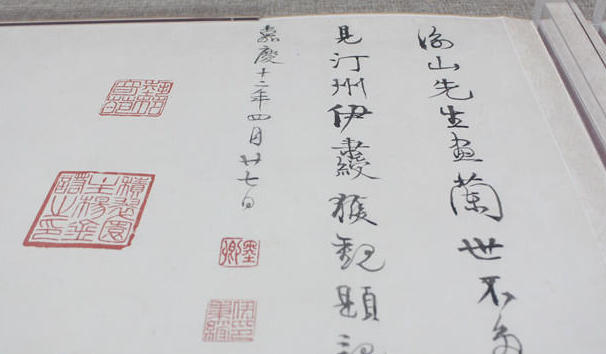 山先生畫蘭世不多
見汀州伊秉綬獲觀題記
嘉慶十二年四月廿七日
墨卿
伊秉綬印